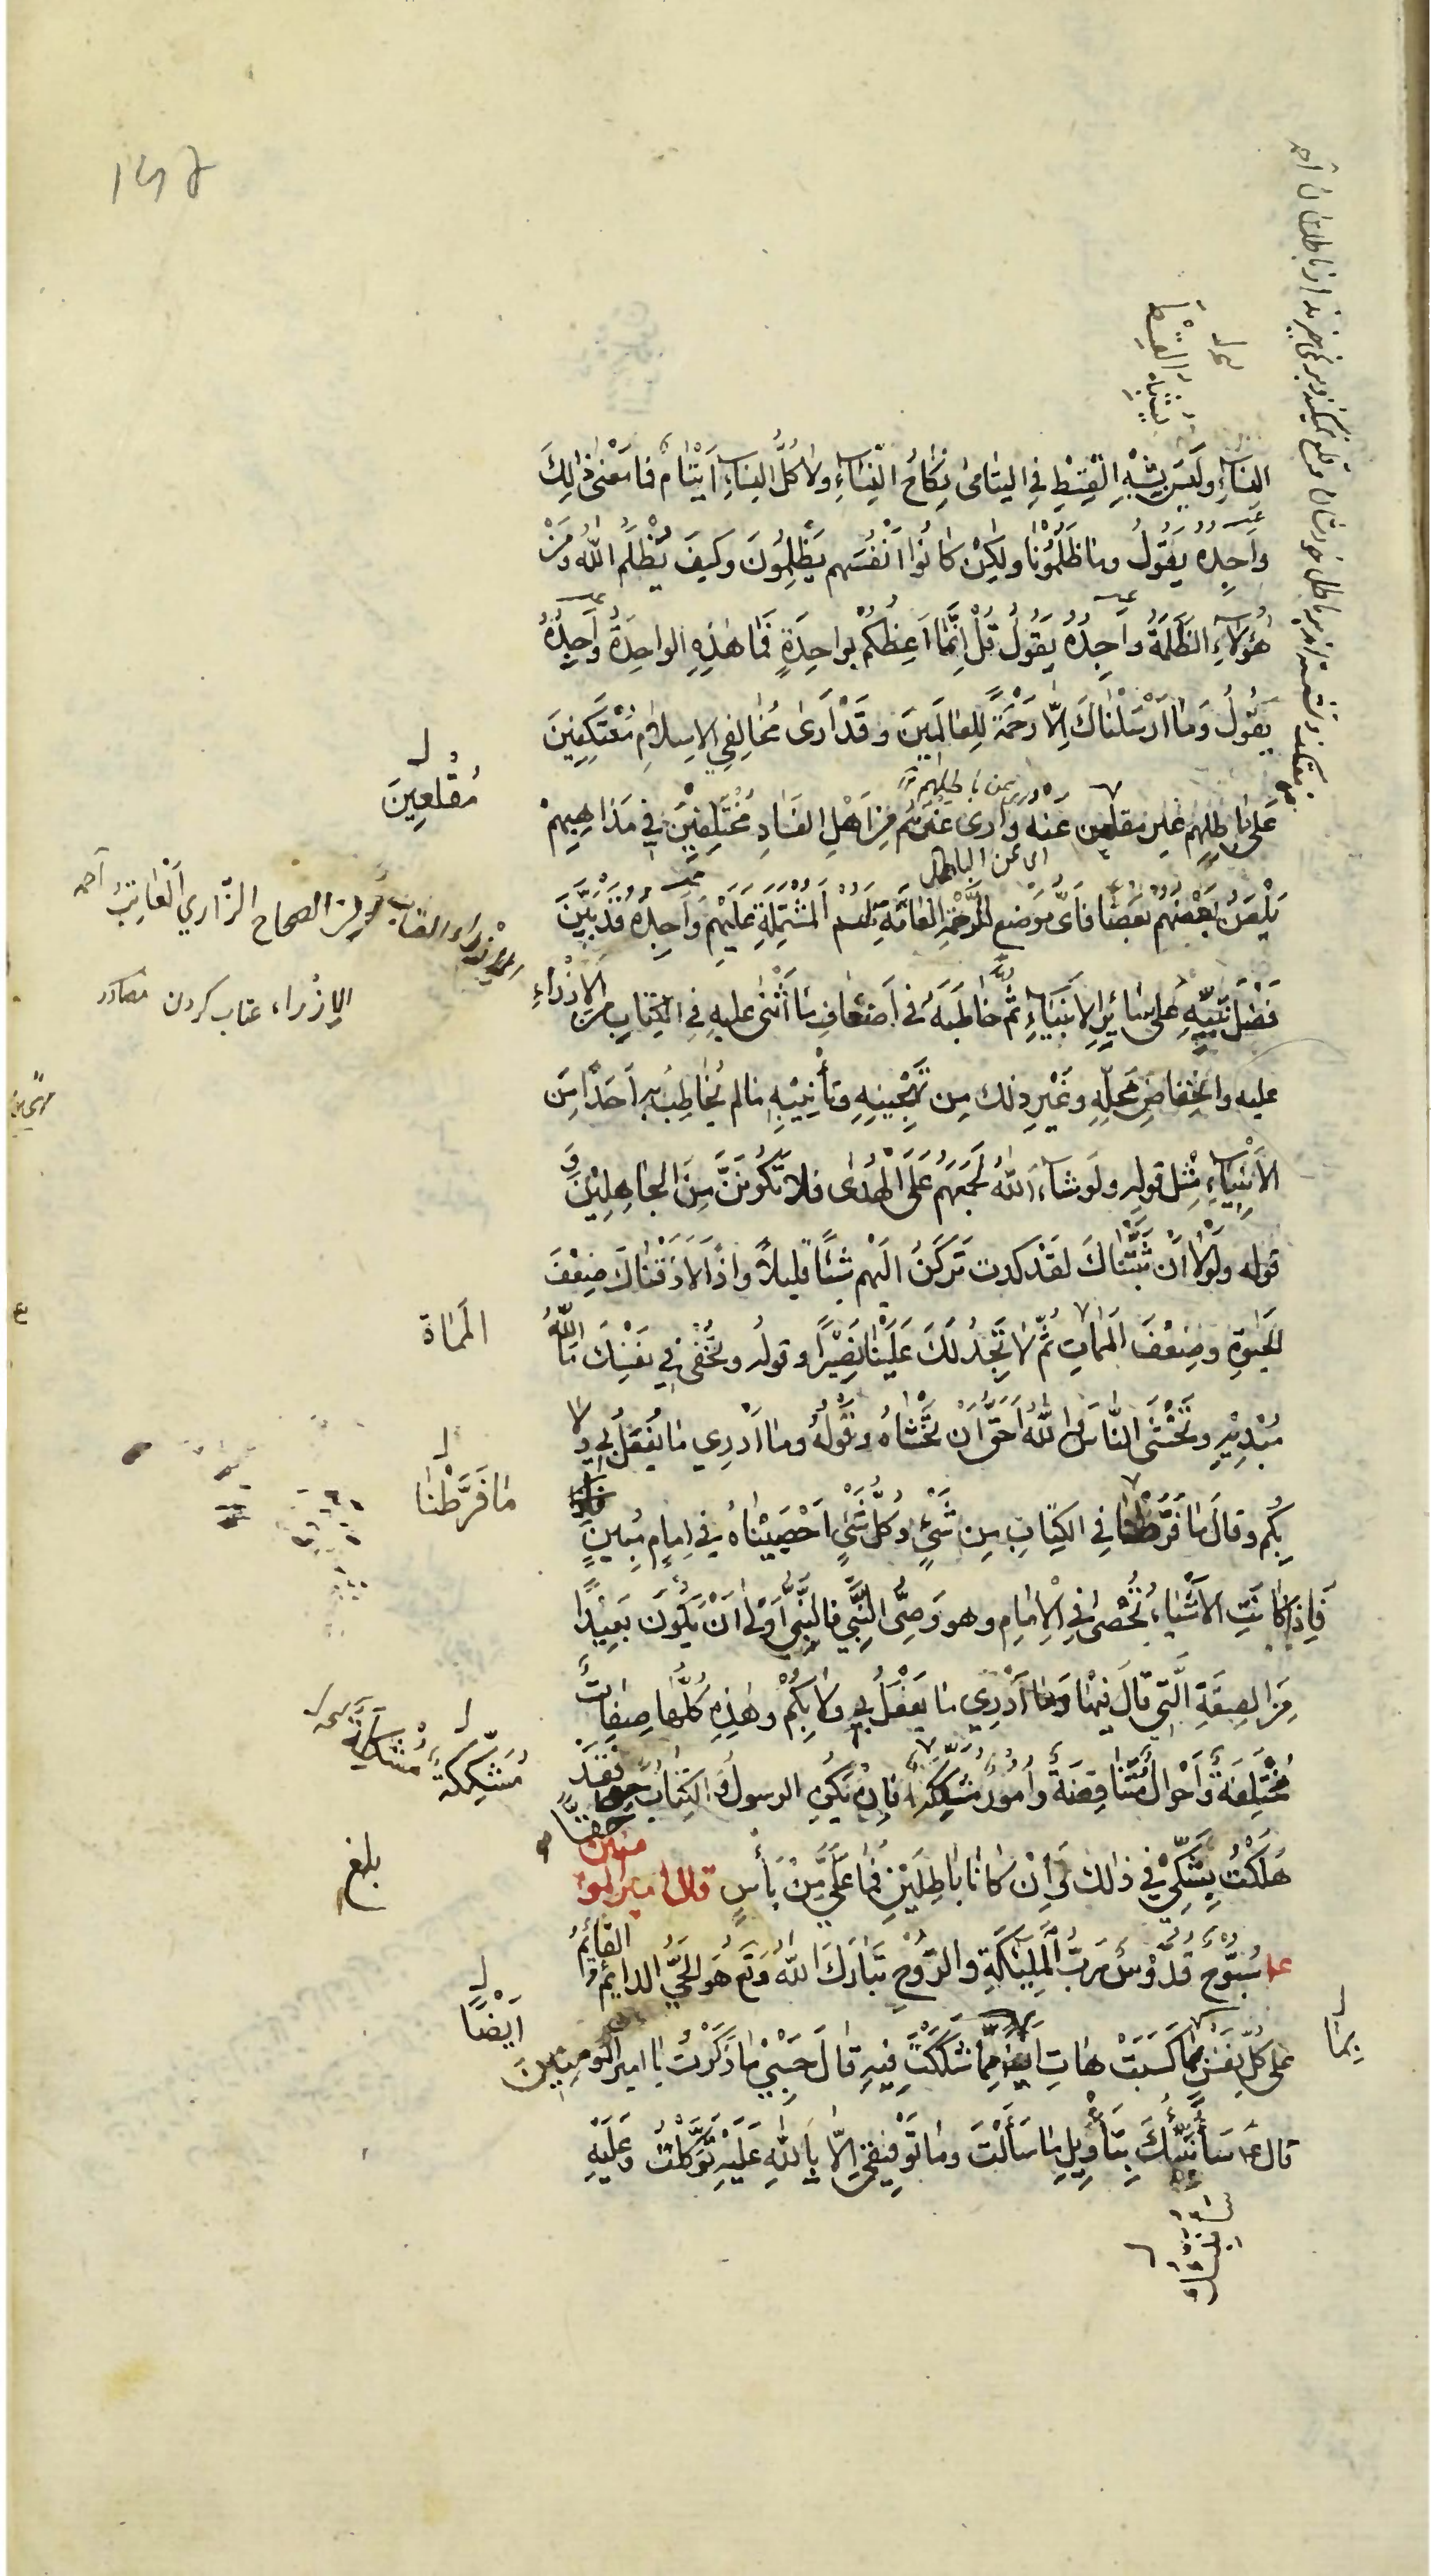 النِّسَاءِ وَلَيْسَ يُشْبِهُ الْقِسْطُ فِي الْيَتَامَى نِكَاحَ النِّسَاءِ وَلَا كُلُّ النِّسَاءِ أَيْتَامٌ فَمَا مَعْنَى ذَلِكَ
وَأَجِدُهُ يَقُولُ وَمَا ظَلَمُونَا وَلَكِنْ كَانُوا أَنْفُسَهُمْ يَظْلِمُونَ وَكَيْفَ يُظْلَمُ اللهُ وَمَنْ
هَؤُلَاءِ الظَّلَمَةُ وَأَجِدُهُ يَقُولُ قُلْ إِنَّمَا أَعِظُكُمْ بِوَاحِدَةٍ فَمَا هَذِهِ الْوَاحِدَةُ وَأَجِدُهُ
يَقُولُ وَمَا أَرْسَلْنَاكَ إِلَّا رَحْمَةً لِلْعَالَمِينَ وَقَدْ أَرَى مُخَالِفِي الْإِسْلَامِ مُعْتَكِفِينَ
مُقْلِعِينَ
عَلَى بَاطِلِهِمْ غَيْرَ مقلعين عنه وَأَرَى غَيْرَهُمْ مِنْ أَهْلِ الْفَسَادِ مُخْتَلِفِينَ فِي مَذَاهِبِهِمْ
اى عن الباطل
يَلْعَنُ بَعْضُهُمْ بَعْضًا فَأَيُّ مَوْضِعٍ لِلرَّحْمَةِ الْعَامَّةِ لَهُمْ الْمُشْتَمِلَةِ عَلَيْهِمْ وَأَجِدُهُ قَدْ بَيَّنَ
من الصحاح الزّاري الْعَاتِبُ
فَضْلَ نَبِيِّهِ عَلَى سَائِرِ الْأَنْبِيَاءِ ثُمَّ خَاطَبَهُ فِي أَضْعَافِ مَا أَثْنَى عَلَيْهِ فِي الْكِتَابِ مِنَ الْإِزْرَاءِ
الإزراء عتاب كردن مصادر
عليه وَانْخِفَاضِ مَحَلِّهِ وَغَيْرِ ذلك مِن تَهْجِينِهِ وَتَأْنِيبِهِ مَا لم يُخَاطِبْ بِهِ أَحَدًا مِنَ
الْأَنْبِيَاءِ مِثْلَ قَولِهِ وَلَو شَاءَ اللهُ لَجَمَعَهُمْ عَلَى الْهُدَى فَلَا تَكُونَنَّ مِنَ الْجَاهِلِينَ وَ
قوله وَلَوْلَا أَنْ ثَبَّتْنَاكَ لَقَدْ كدت تَرْكَنُ إِلَيْهِمْ شَيْئًا قَلِيلًا وَإِذًا لَأَذَقْنَاكَ ضِعْفَ
الْحَيَوةِ وَضِعْفَ الْمَمَاتِ ثُمَّ لَا تَجِدُ لَكَ عَلَيْنَا نَصِيرًا وقوله وَتُخْفِي فِي نَفْسِكَ مَا اللهُ
المَمَاة
مُبْدِيهِ وَتَخْشَى النَّاسَ وَاللهُ أَحَقُّ أَنْ تَخْشَاهُ وَقَوْلُهُ وَمَا أَدْرِي مَا يُفْعَلُ بِي وَلَا
بِكُمْ وَقَالَ مَا فَرَّطْنَا فِي الْكِتَابِ مِن شَيْءٍ وَكُلَّ شَيْءٍ أَحْصَيْنَاهُ فِي إِمَامٍ مُبِينٍ
مَا فَرَّطْنَا
فَإِذَا كَانَتِ الْأَشْيَاءُ تُحْصَى فِي الْإِمَامِ وهو وَصِيُّ النَّبِيِّ فَالنَّبِيُّ أَوْلَى أَنْ يَكُونَ بَعِيدًا
مِنَ الصِّفَةِ الَّتِي قَالَ فِيهَا وَمَا أَدْرِي مَا يُفْعَلُ بِي وَلَا بِكُمْ وَهَذِهِ كُلُّهَا صِفَاتٌ
مُخْتَلِفَةٌ وَأَحْوَالٌ مُتَنَاقِضَةٌ وَأُمُورٌ مُشْكِلَةٌ فَإِنْ يَكُنِ الرسولُ وَالْكِتَابُ حَقًّا فَقَدْ
مُشَكِّكَةٌ
هَلَكْتُ بِشَكِّي فِي ذَلِكَ وَإِنْ كَانَا بَاطِلَيْنِ فَمَا عَلَيَّ مِنْ بَأْسٍ قال امير المؤمنين
بلغ
ع سُبُّوحٌ قُدُّوسٌ رَبُّ الْمَلَئِكَةِ وَالرُّوحِ تَبَارَكَ اللهُ وَتَعَ هُوَ الْحَيُّ الدائِمُ القائِمُ
عَلَى كُلِّ نَفْسٍ بِمَا كَسَبَتْ هَاتِ أَيْضًا مَا شَكَكْتَ فِيهِ قَالَ حَسْبِي مَا ذَكَرْتُ يَا امير المؤمِنِينَ
أَيْضًا
بِمَا
قال ع سَأُنَبِّئُكَ بِتَأْوِيلِ مَا سَأَلْتَ وَمَا تَوْفِيقِي إِلَّا بِاللهِ عَلَيْهِ تَوَكَّلْتُ وَعَلَيْهِ